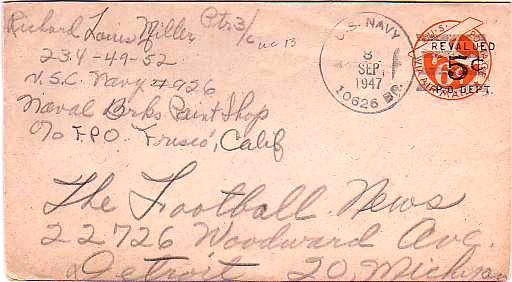 Richard Louis Miller Ptr3/c
234-49-52
U.S.C. Navy #926
Naval Brks. Paint Shop
c/o F.P.O. Frisco, Calif
U.S. NAVY
8
SEP
1947
10626 BR.
U.S. POSTAGE
REVALUED
5¢
P.O. DEPT.
VIA AIR MAIL
The Football News
22726 Woodward Ave.
Detroit 20, Michigan